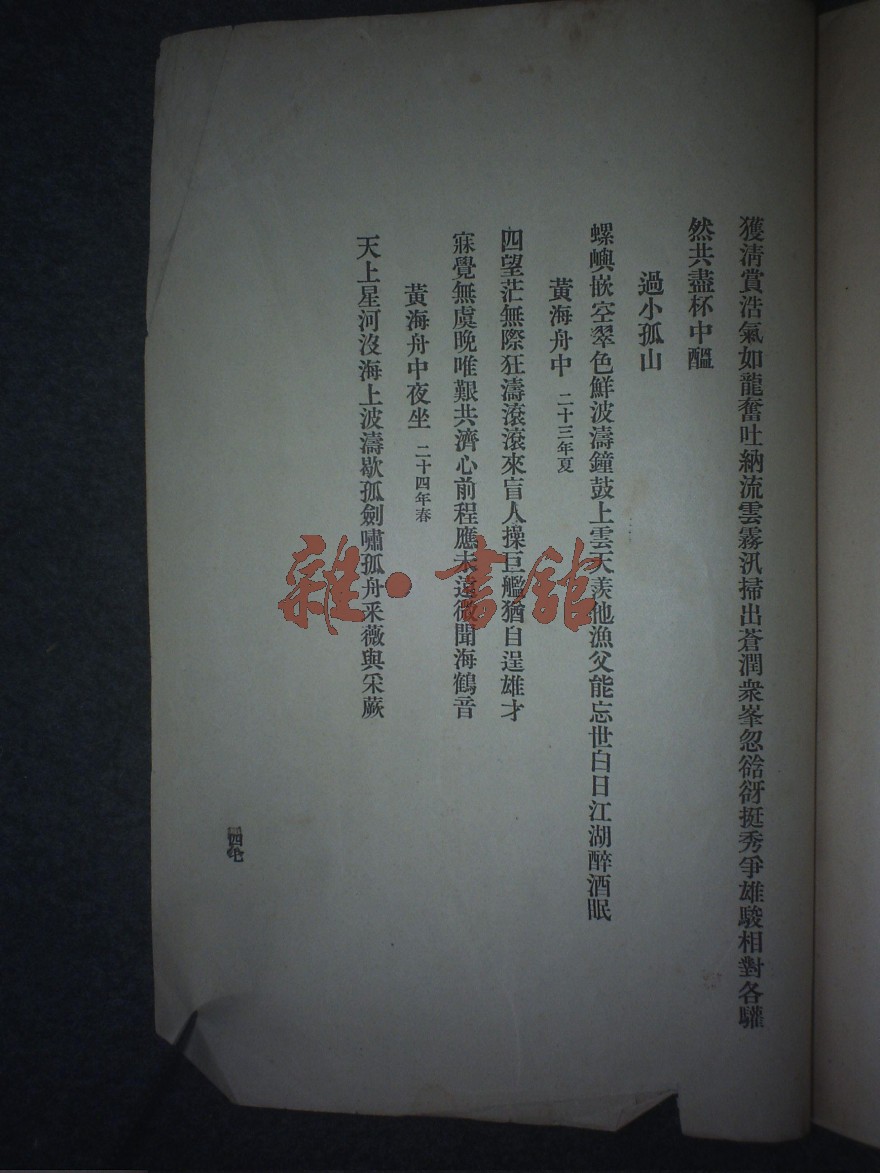 獲淸賞浩氣如龍奮吐納流雲霧汛掃出蒼潤衆峯忽谽谺挺秀爭雄駿相對各驩
然共盡杯中醞
過小孤山
螺嶼嵌空翠色鮮波濤鐘鼓上雲天羨他漁父能忘世白日江湖醉酒眠
黃海舟中 二十三年夏
四望茫無際狂濤滾滾來盲人操巨艦猶自逞雄才
寐覺無虞晚唯艱共濟心前程應未遠微聞海鶴音
黃海舟中夜坐 二十四年春
天上星河沒海上波濤歇孤劍嘯孤舟采薇與采蕨
四七
雜·書館